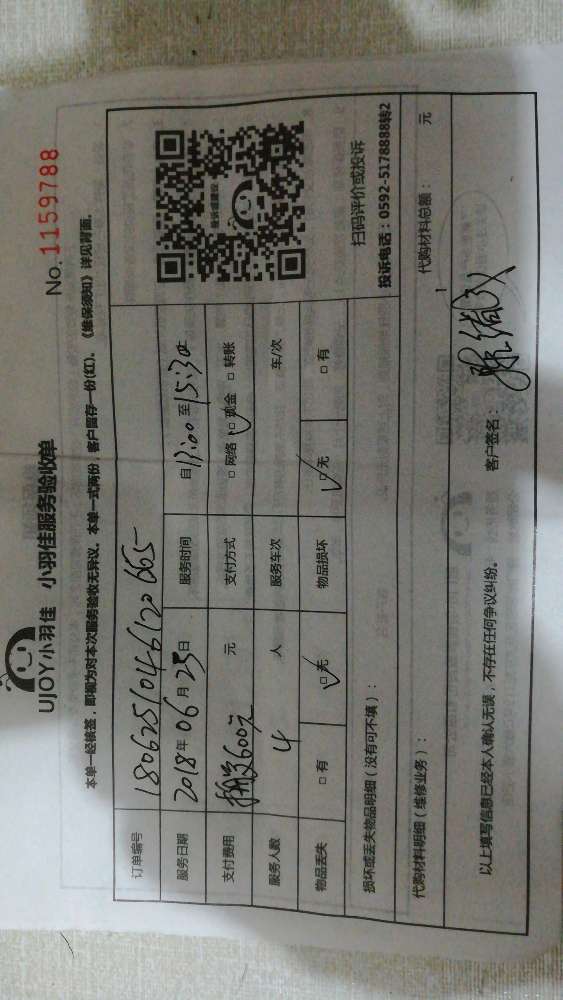 UJOY小羽佳 小羽佳服务验收单
No. 1159788
本单一经核签，即视为对本次服务验收无异议。本单一式两份，客户留存一份(红)。《维保须知》详见背面.
订单编号 1806251046120665
服务日期 2018年06月25日 服务时间 自13:00至15:30
支付费用 600元 元 支付方式 □网络 □现金 □转账
服务人数 4 人 服务车次 车/次
物品丢失 □有 □无 物品损坏 □无 □有
扫码评价或投诉
投诉电话：0592-5178888转2
损坏或丢失物品明细（没有可不填）：
代购材料明细（维修业务）： 代购材料总额： 元
以上填写信息已经本人确认无误，不存在任何争议纠纷。 客户签名：